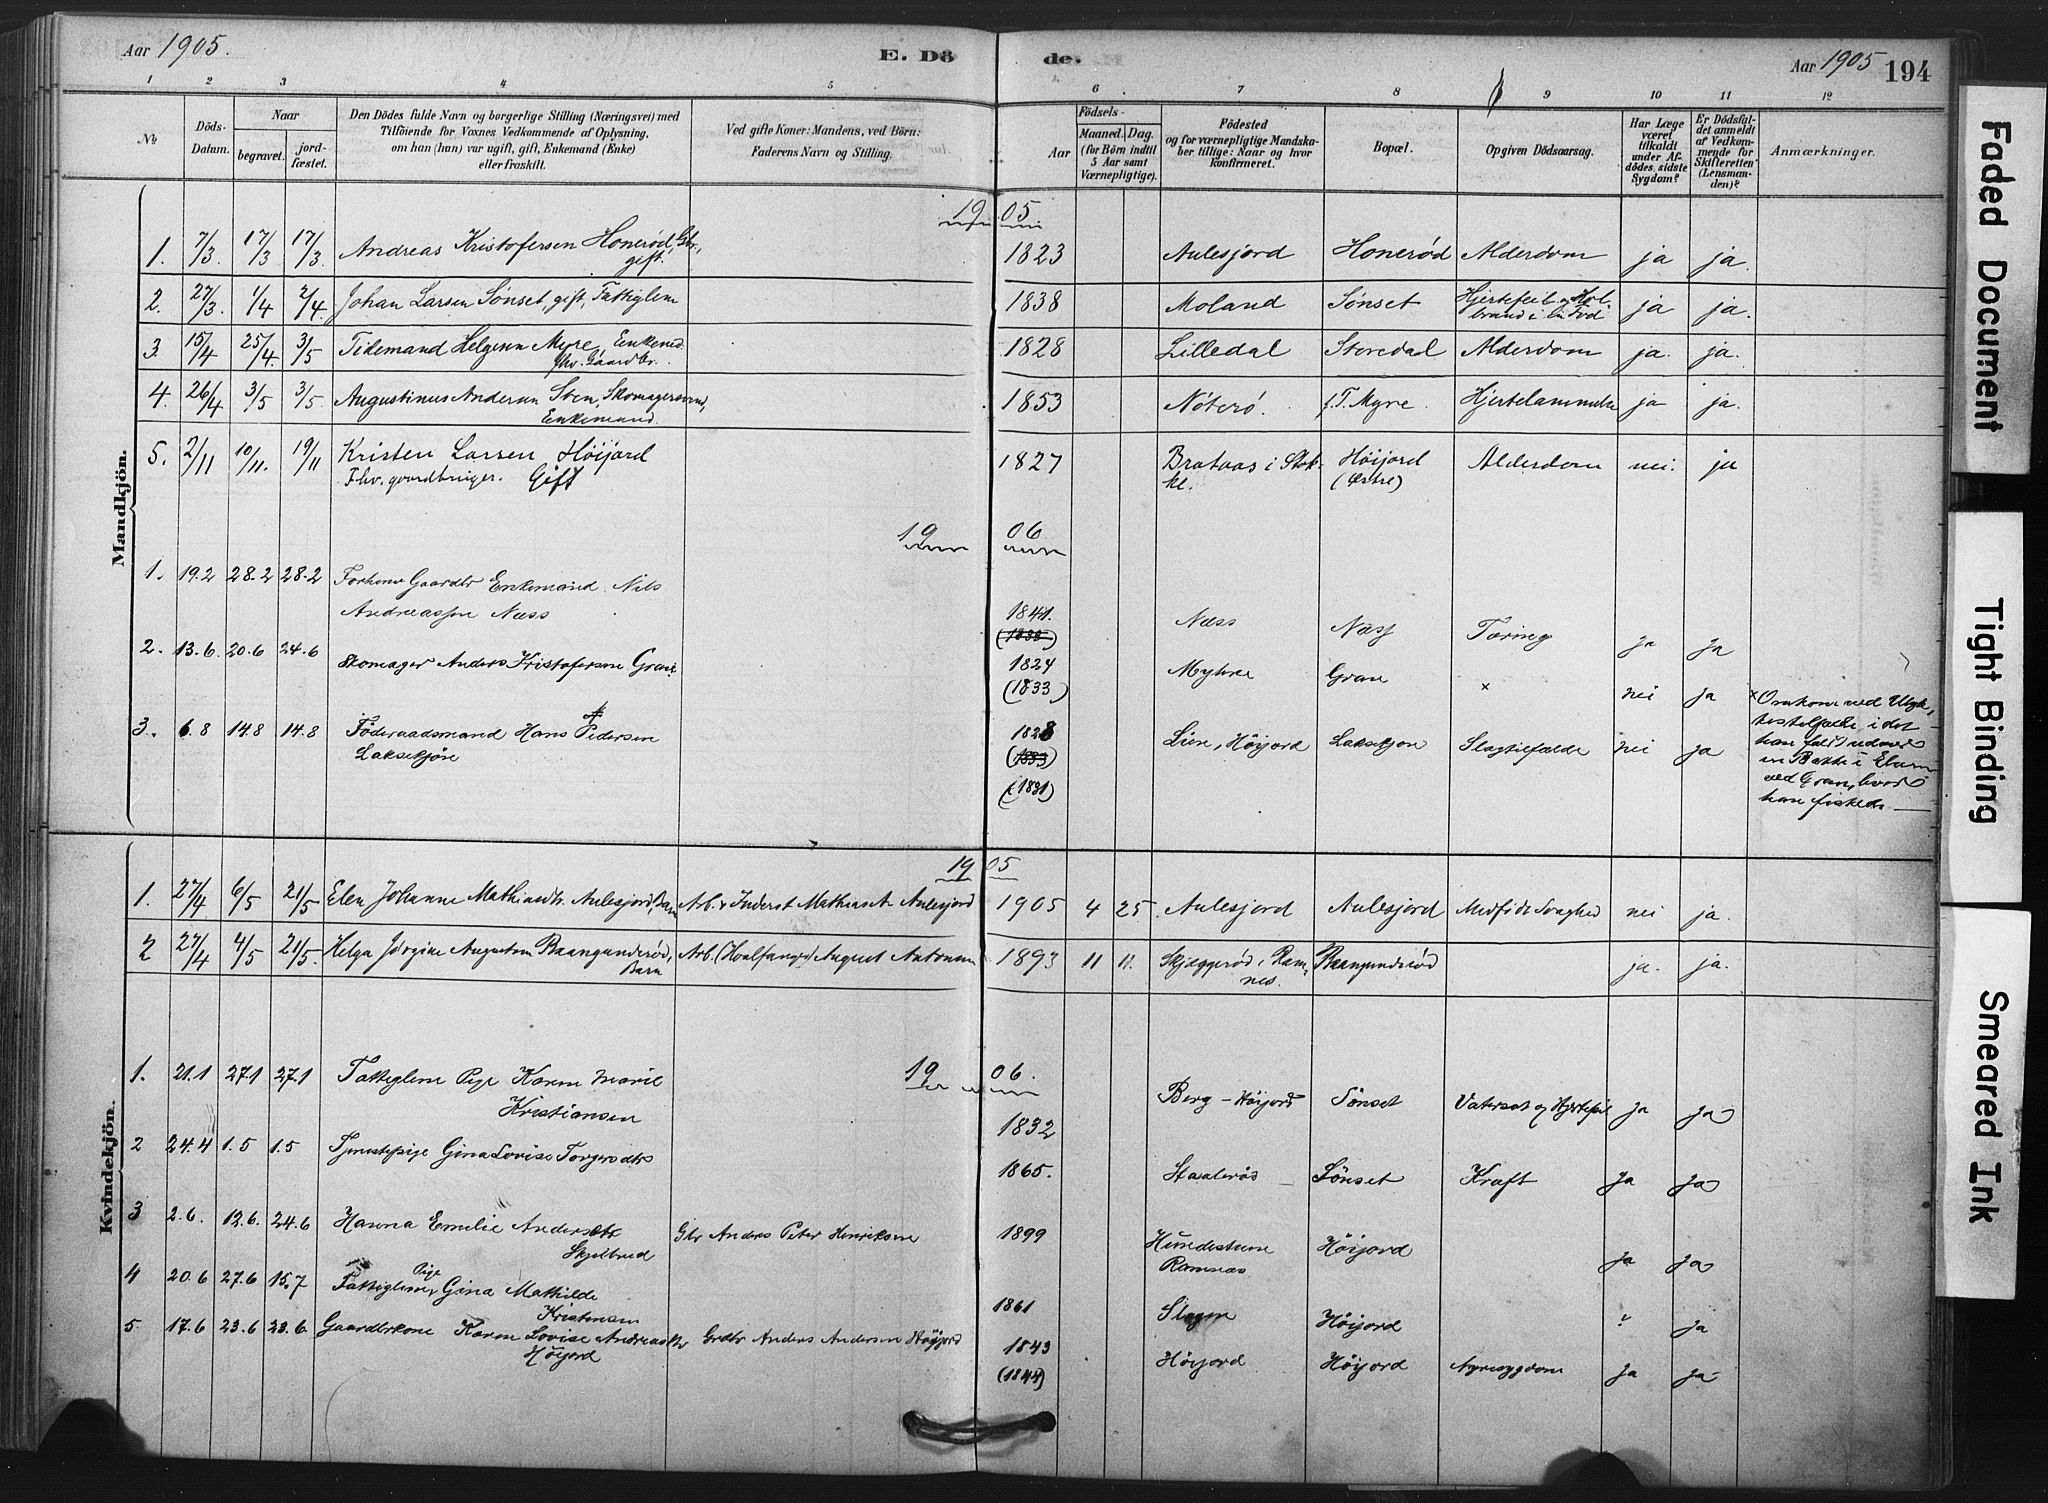 Aar 1905.
E. Dö
de.
Aar 1905
194
1 2 3 4 5 6 7 8 9 10 11 12
No
Döds-Datum.
Naar
begravet.
jordfæstet.
Den Dödes fulde Navn og borgerlige Stilling (Næringsvei) med
Tilföiende for Voxnes Vedkommende af Oplysning,
om han (hun) var ugift, gift, Enkemand (Enke)
eller fraskilt.
Ved gifte Koner: Mandens, ved Börn:
Faderens Navn og Stilling.
Födsels-
Aar
Maaned. Dag.
(for Börn indtil
5 Aar samt
Værnepligtige).
Födested
og for værnepligtige Mandska-
ber tillige: Naar og hvor
konfirmeret.
Bopæl.
Opgiven Dödsaarsag.
Har Læge
været
tilkaldt
under Af-
dödes sidste
Sygdom?
Er Dödsfal-
det anmeldt
af Vedkom-
mende for
Skifteretten
(Lensman-
den)?
Anmærkninger.
Mandkjön.
19 05
1. 7/3 17/3 17/3 Andreas Kristofersen Honerød, Gbr., 1823 Aulesjord Honerød Alderdom ja ja.
gift.
2. 27/3 1/4 2/4 Johan Larsen Sønset, gift, Fattiglem 1838 Moland Sønset Hjertefeil og Kol- ja ja.
brand i
3. 15/4 25/4 3/5 Tidemand Helgesen Myre, 1828 Lilledal Storedal Alderdom ja. ja.
fhv. Gaardbr.
4. 26/4 3/5 3/5 Augustinus Andersen Sten, 1853 Nøterø. Myre. ja ja.
Enkemand.
5. 2/11 10/11. 19/11 Kristen Larsen Höijord 1827 Brataas i Stok- Höijord Alderdom nei. ja
Fhv. gaardbruger. Gift
ke. (østre)
19 06
1. 19.2 28.2 28.2 Forhenv Gaardbr Enkemand Nils
Andreassen Næss 1841. Næss Næss Tæring ja ja
(1833)
2. 13.6 20.6 24.6 Skomager Anders Kristofersen Gran 1824 Myhre Gran × nei ja
(1833)
× Omkom ved Ulyk-
kestilfælde i det
han faldt udover
en Bakke i Elven
ved Gran, hvor
han fiskede.
3. 6.8 14.8 14.8 Föderaadsmand Hans Pedersen 1828 Lien, Höijord Laksekjøn Slagtilfælde nei ja
Laksekjøn
(1833)
(1831)
Kvindekjön.
19 05
1. 27/4 6/5 21/5 Elen Johanne Mathiasdtr. Aulesjord, Barn Arb. & Inderst Mathias A. Aulesjord 1905 4 25. Aulesjord Aulesjord Medfødt Svaghed nei ja.
2 27/4 4/5 21/5. Helga Jørgine Augustsen Raangunderød, Arb. (Hvalfanger) August Antonsen 1893 11 11. Skjeggerød i Ram- Raangunderød ja. ja.
Barn
nes.
19 06.
1. 21.1 27.1 27.1 Fattiglem Pige Karen Marie
Kristiansen 1832 Berg - Höijord Sönset Vatersot og Hjertefeil ja ja
2 24.4 1.5 1.5 Tjenestepige Gina Lovise Torgersdtr 1865. Sönset Kræft ja ja
3 2.6. 12.6. 24.6 Hanna Emilie Andersdtr Gbr Anders Peter Henriksen 1899 Hundestuen Höijord ja ja
Skjelbred
Ramnæs
4 20.6 27.6 15.7 Fattiglem Pige Gina Mathilde
Kristensen 1861 Slagen Höijord " ja
5. 17.6 23.6 23.6. Gaardbrkone Karen Lovise Andreasdtr Grdbr Anders Andersen Höijord 1843 Höijord Höijord ja ja
Höijord
(1844)
Faded Document
Tight Binding
Smeared Ink